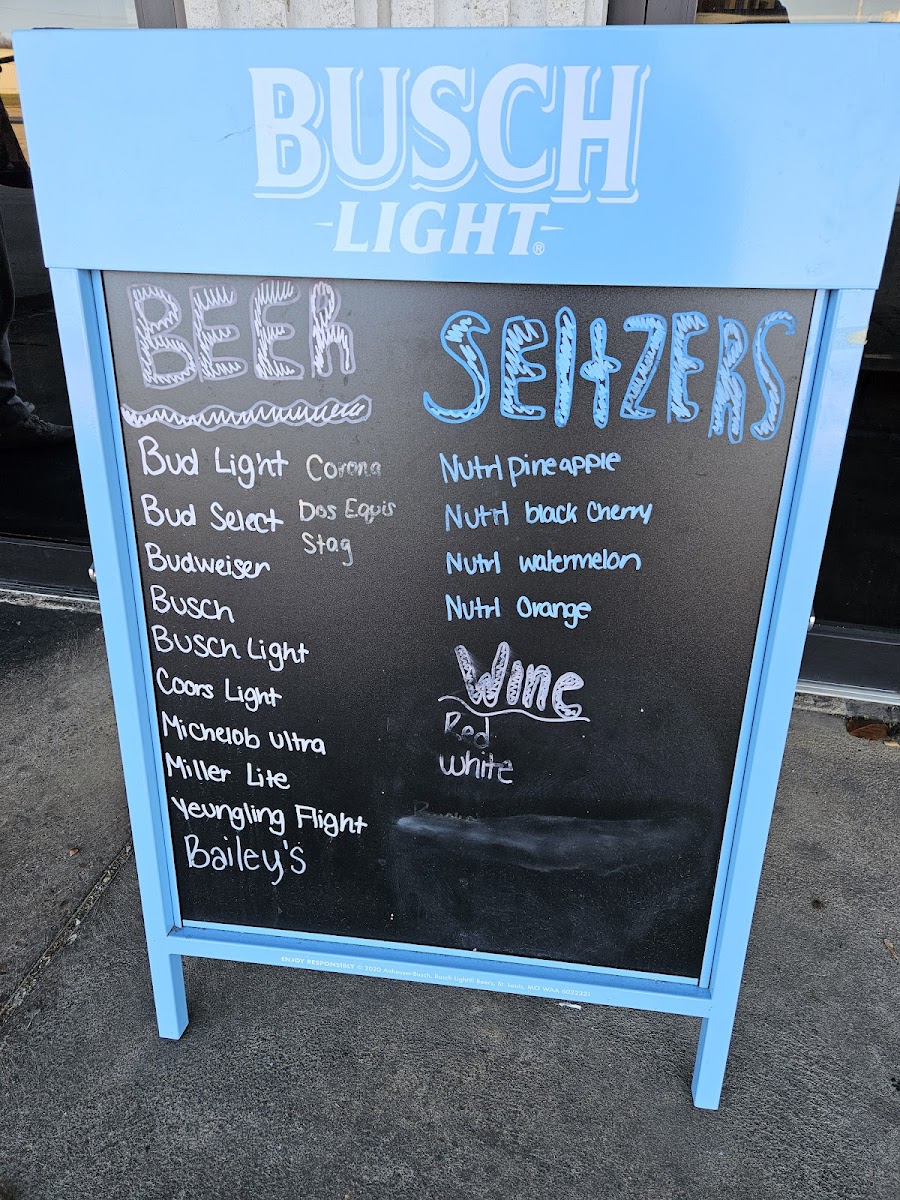 BUSCH
LIGHT®
BEER
Bud Light
Bud Select
Budweiser
Busch
Busch Light
Coors Light
Michelob Ultra
Miller Lite
Yeungling Flight
Bailey's
Corona
Dos Equis
Stag
SEltZERS
Nutrl pineapple
Nutrl black cherry
Nutrl watermelon
Nutrl Orange
Wine
Red
White
ENJOY RESPONSIBLY © 2020 Anheuser-Busch, Busch Light® Beers, St. Louis, MO